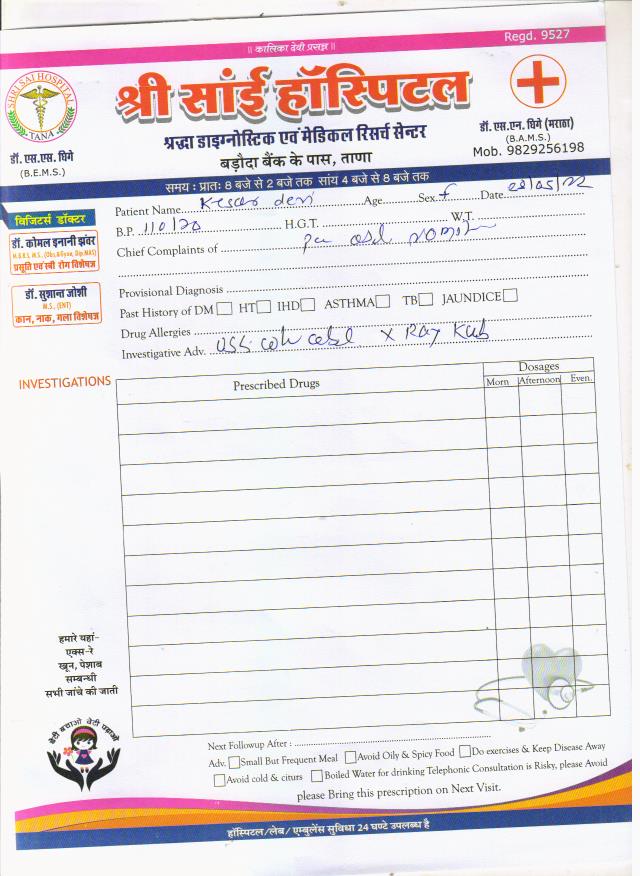 Regd. 9527
॥ कालिका देवी प्रसन्न ॥
SHRI SAI HOSPITAL
TANA
श्री सांई हॉस्पिटल
श्रद्धा डाइग्नोस्टिक एवं मेडिकल रिसर्च सेन्टर
बड़ौदा बैंक के पास, ताणा
डॉ. एस.एस. घिगे
(B.E.M.S.)
डॉ. एस.एन. घिगे (मराठा)
(B.A.M.S.)
Mob. 9829256198
समय : प्रातः 8 बजे से 2 बजे तक सांय 4 बजे से 8 बजे तक
विजिटर्स डॉक्टर
डॉ. कोमल इनानी झंवर
प्रसुति एवं स्त्री रोग विशेषज्ञ
डॉ. सुशान्त जोशी
M.S., (ENT)
कान, नाक, गला विशेषज्ञ
Patient Name Kesar devi Age Sex f Date
B.P. 110/70 H.G.T. W.T.
Chief Complaints of
Provisional Diagnosis
Past History of DM HT IHD ASTHMA TB JAUNDICE
Drug Allergies
Investigative Adv. X Ray Kub
INVESTIGATIONS
Prescribed Drugs Dosages
Morn Afternoon Even.
हमारे यहां-
एक्स-रे
खून, पेशाब
सम्बन्धी
सभी जांचे की जाती
बेटी बचाओ बेटी पढ़ाओ
Next Followup After :
Adv. Small But Frequent Meal Avoid Oily & Spicy Food Do exercises & Keep Disease Away
Avoid cold & citurs Boiled Water for drinking Telephonic Consultation is Risky, please Avoid
please Bring this prescription on Next Visit.
हॉस्पिटल/लेब/एम्बुलेंस सुविधा 24 घण्टे उपलब्ध है